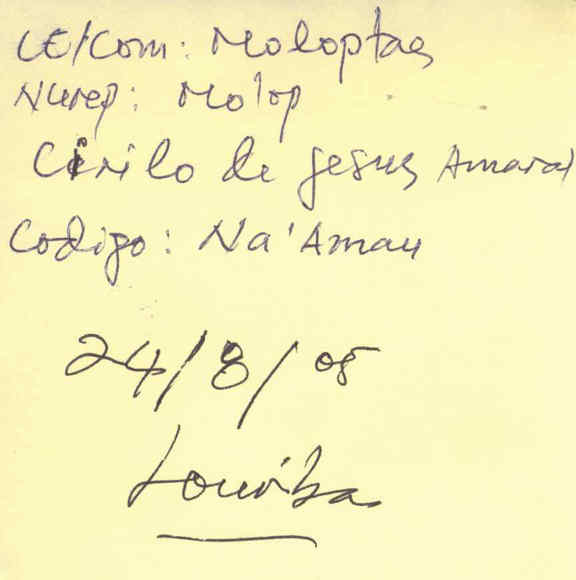 CE/Com: Moloptas
Nurep: Molop
Cirilo de Jesus Amaral
Codigo: Na'Aman
24/8/05